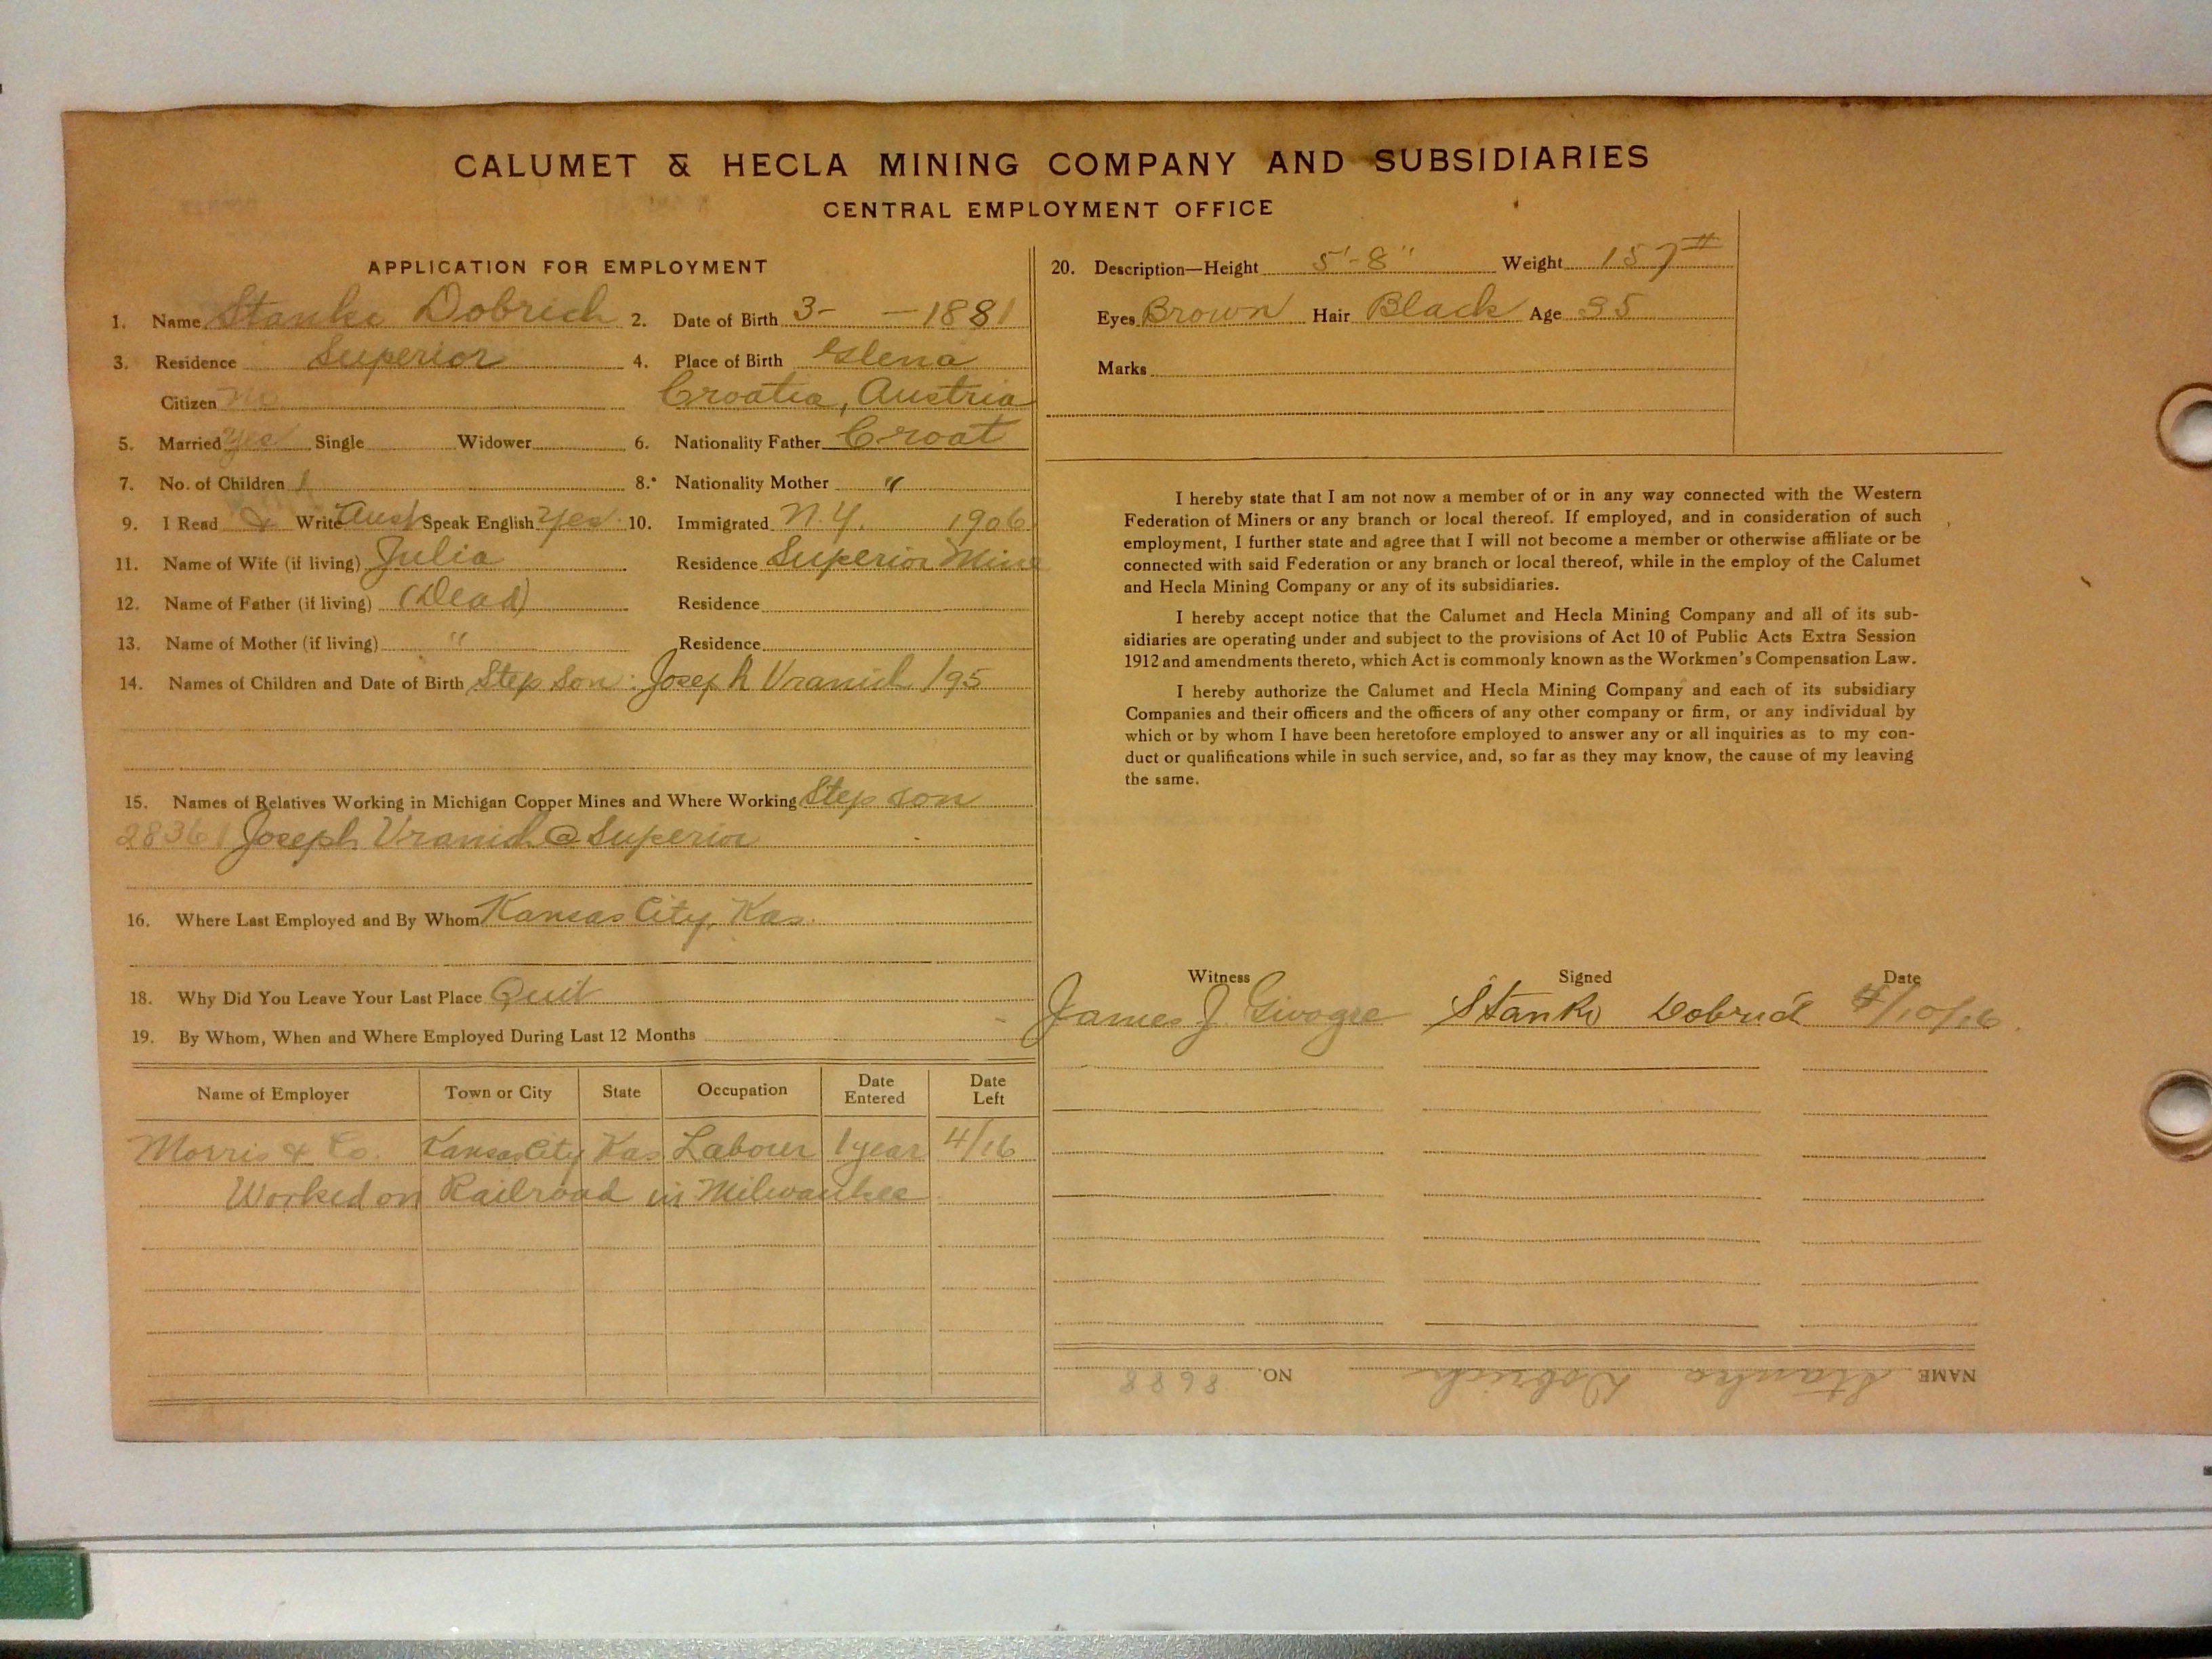 CALUMET & HECLA MINING COMPANY AND SUBSIDIARIES
CENTRAL EMPLOYMENT OFFICE
APPLICATION FOR EMPLOYMENT
1. Name Stanko Dobrich 2. Date of Birth 3- -1881
3. Residence Superior 4. Place of Birth Glena
Citizen no Croatia, Austria
5. Married yes Single Widower 6. Nationality Father Croat
7. No. of Children 1 8. Nationality Mother "
9. I Read & Write Aust Speak English yes 10. Immigrated N.Y. 1906
11. Name of Wife (if living) Julia Residence Superior Mine
12. Name of Father (if living) (Dead) Residence
13. Name of Mother (if living) " Residence
14. Names of Children and Date of Birth Step son: Joseph Vranich 195
15. Names of Relatives Working in Michigan Copper Mines and Where Working Step son
28361 Joseph Vranich @ Superior
16. Where Last Employed and By Whom Kansas City, Kas.
18. Why Did You Leave Your Last Place Quit
19. By Whom, When and Where Employed During Last 12 Months
Name of Employer Town or City State Occupation Date Entered Date Left
Morris & Co. Kansas City Kas Labourer 1 year 4/16
Worked on Railroad in Milwaukee
20. Description—Height 5'-8" Weight 157#
Eyes Brown Hair Black Age 35
Marks
I hereby state that I am not now a member of or in any way connected with the Western
Federation of Miners or any branch or local thereof. If employed, and in consideration of such
employment, I further state and agree that I will not become a member or otherwise affiliate or be
connected with said Federation or any branch or local thereof, while in the employ of the Calumet
and Hecla Mining Company or any of its subsidiaries.
I hereby accept notice that the Calumet and Hecla Mining Company and all of its sub-
sidiaries are operating under and subject to the provisions of Act 10 of Public Acts Extra Session
1912 and amendments thereto, which Act is commonly known as the Workmen's Compensation Law.
I hereby authorize the Calumet and Hecla Mining Company and each of its subsidiary
Companies and their officers and the officers of any other company or firm, or any individual by
which or by whom I have been heretofore employed to answer any or all inquiries as to my con-
duct or qualifications while in such service, and, so far as they may know, the cause of my leaving
the same.
Witness Signed Date
James J. Stanko Dobrich 4/10/16
NAME Stanko Dobrich NO. 8698